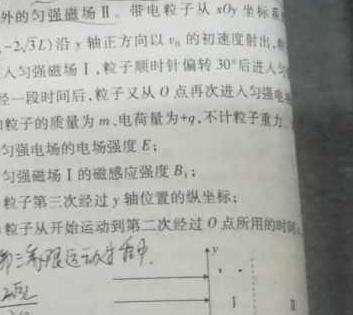 外的匀强磁场Ⅱ。带电粒子从 xOy 坐标系
-2√3L)沿 y 轴正方向以 v₀ 的初速度射出,
人匀强磁场Ⅰ,粒子顺时针偏转 30°后进入匀
经一段时间后,粒子又从 O 点再次进入匀强电
粒子的质量为 m、电荷量为+q,不计粒子重力
匀强电场的电场强度 E;
匀强磁场Ⅰ的磁感应强度 B₁;
粒子第三次经过 y 轴位置的纵坐标;
粒子从开始运动到第二次经过 O 点所用的时间
第三象限运动
y
Ⅰ Ⅱ